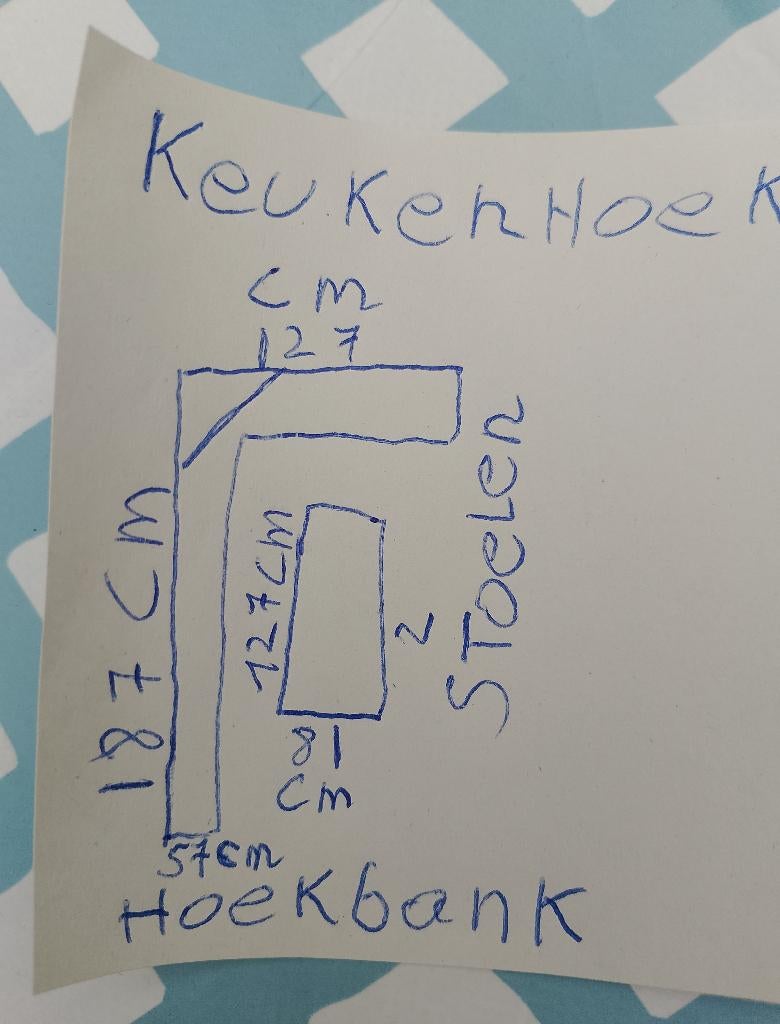 KeuKenHoeK
cm
127
187 cm
127 cm
2
STOeLen
81
cm
57cm
HoeKbanK